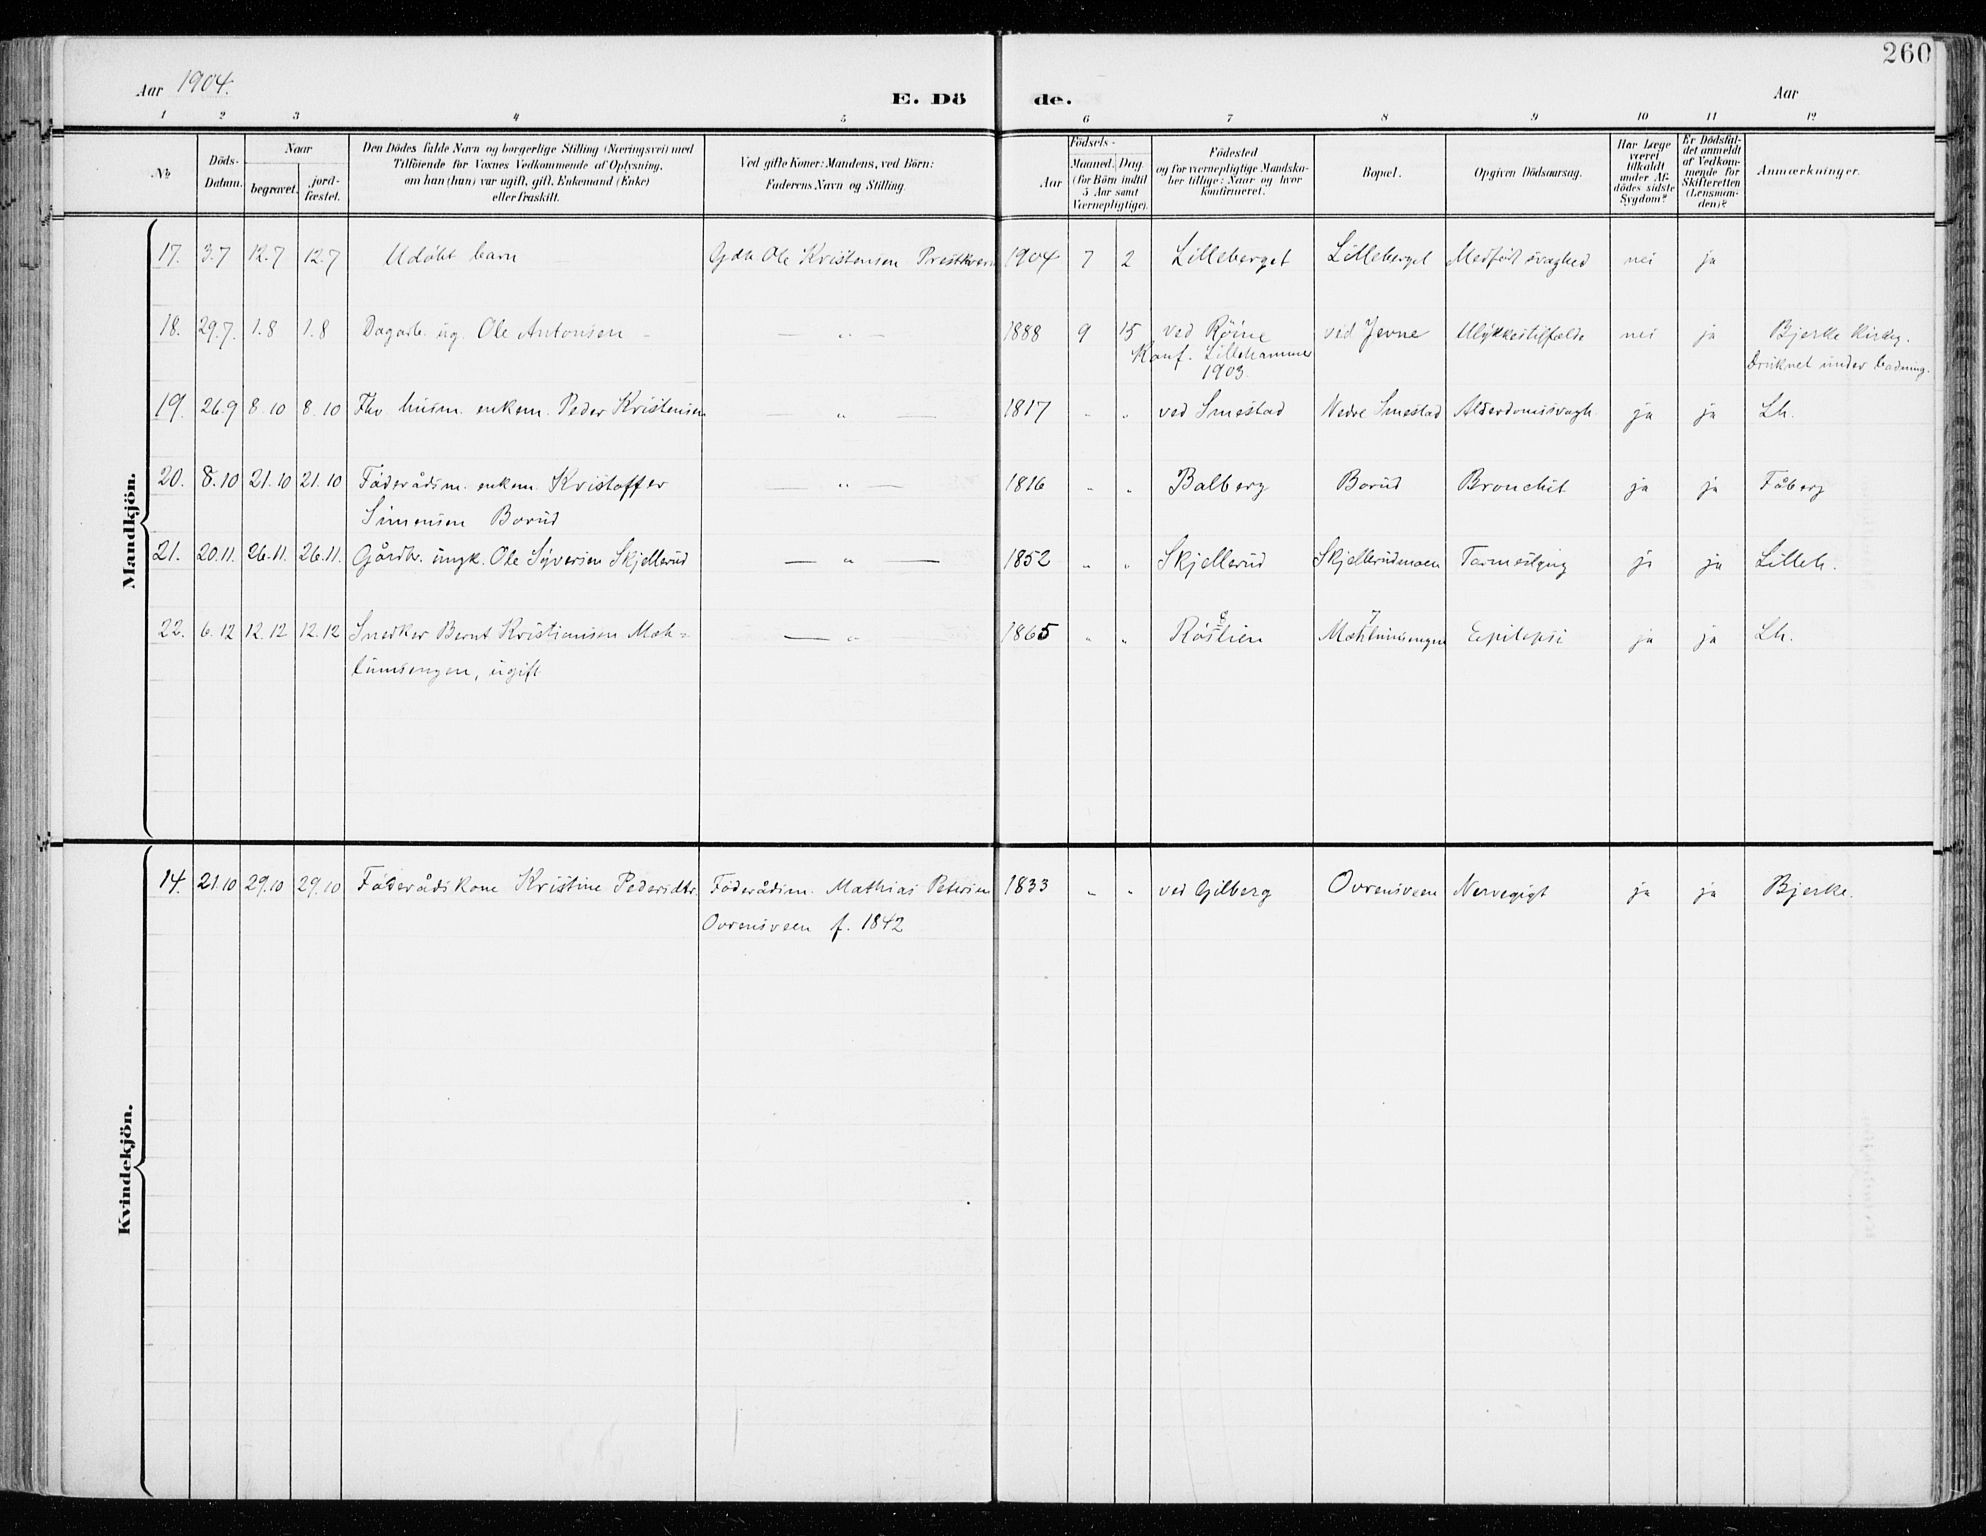 260
Aar 1904.
E. Dö de.
Aar
1 2 3 4 5 6 7 8 9 10 11 12
№
Döds-Datum.
Naar
begravet.
jord-fæstet.
Den Dödes fulde Navn og borgerlige Stilling (Næringsvei) med
Tilföiende for Voxnes Vedkommende af Oplysning,
om han (hun) var ugift, gift, Enkemand (Enke)
eller fraskilt.
Ved gifte Koner: Mandens, ved Börn:
Faderens Navn og Stilling.
Födsels-
Aar
Maaned. Dag.
(for Börn indtil
5 Aar samt
Værnepligtige).
Födested
og for værnepligtige Mandska-
ber tillige: Naar og hvor
konfirmeret.
Bopæl.
Opgiven Dödsaarsag.
Har Læge
været
tilkaldt
under Af-
dödes sidste
Sygdom?
Er Dödsfal-
det anmeldt
af Vedkom-
mende for
Skifteretten
(Lensman-
den)?
Anmærkninger.
Mandkjön.
17. 3.7 12.7 12.7 Udøbt barn Gdb Ole Kristensen Prestkvern 1904 7 2 Lilleberget Lilleberget Medfødt svaghed nei ja
18. 29.7. 1.8 1.8 Dagarb. ug. Ole Antonsen — „ — 1888 9 15 ved Røine ved Jevne Ulykkestilfælde nei ja Bjerke Kirkeg.
Konf. Lillehammer
1903
Druknet under badning.
19. 26.9 8.10 8.10 Fhv husm. enkem. Peder Kristensen — „ — 1817 „ „ ved Smestad Nedre Smestad Alderdomssvagh. ja ja Lh.
20. 8.10 21.10 21.10 Føderådsm. enkem. Kristoffer — „ — 1816 „ „ Balberg Borud Bronchit ja ja Fåberg
Simensen Borud
21. 20.11. 26.11. 26.11. Gårdbr. ungk. Ole Syversen Skjellerud — „ — 1852 „ „ Skjellerud Skjellerudmoen Tarmeslyng ja ja Lilleh.
22. 6.12 12.12 12.12 Snedker Bernt Kristiansen Mæh- — „ 1865 „ „ Røstien Mæhlumsengen Epilepsi ja ja Lh.
lumsengen, ugift
Kvindekjön.
14. 21.10 29.10 29.10 Føderådskone Kristine Pedersdtr. Føderådsm. Mathias Petersen 1833 „ „ ved Gilberg Ovrensveen Nervegigt ja ja Bjerke.
Ovrensveen f. 1842